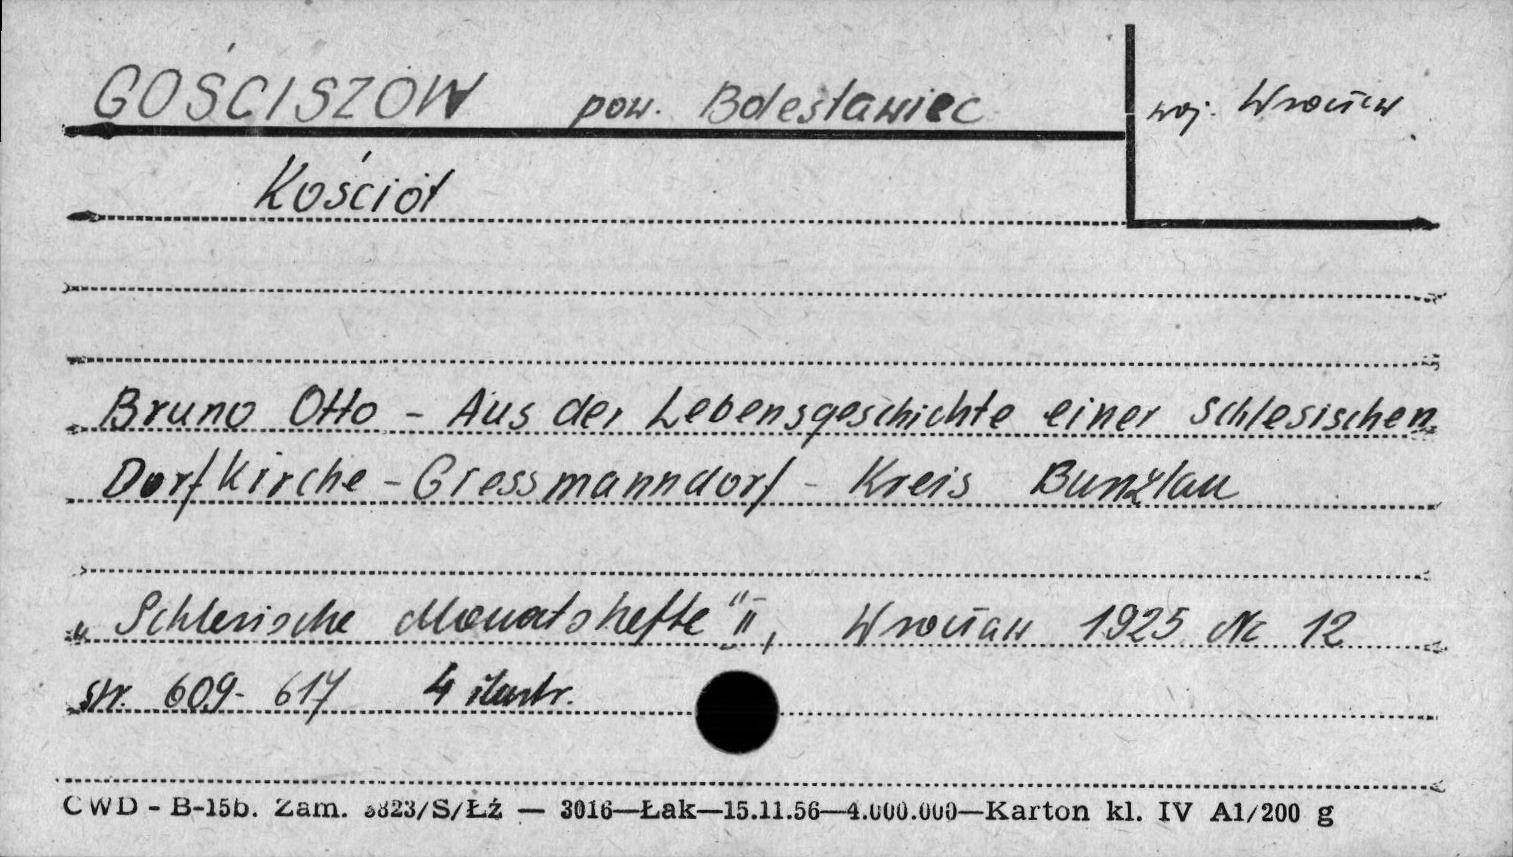 GOŚCISZÓW pow. Bolesławiec woj. Wrocław
Kościół
Bruno Otto - Aus der Lebensgeschichte einer schlesischen
Dorfkirche - Giessmanndorf - Kreis Bunzlau
„Schlesische Monatshefte" II, Wrocław 1925 Nr 12
str. 609-617 4 ilustr.
CWD - B-15b. Zam. 3823/S/Łź — 3016—Łak—15.11.56—4.000.000—Karton kl. IV A1/200 g